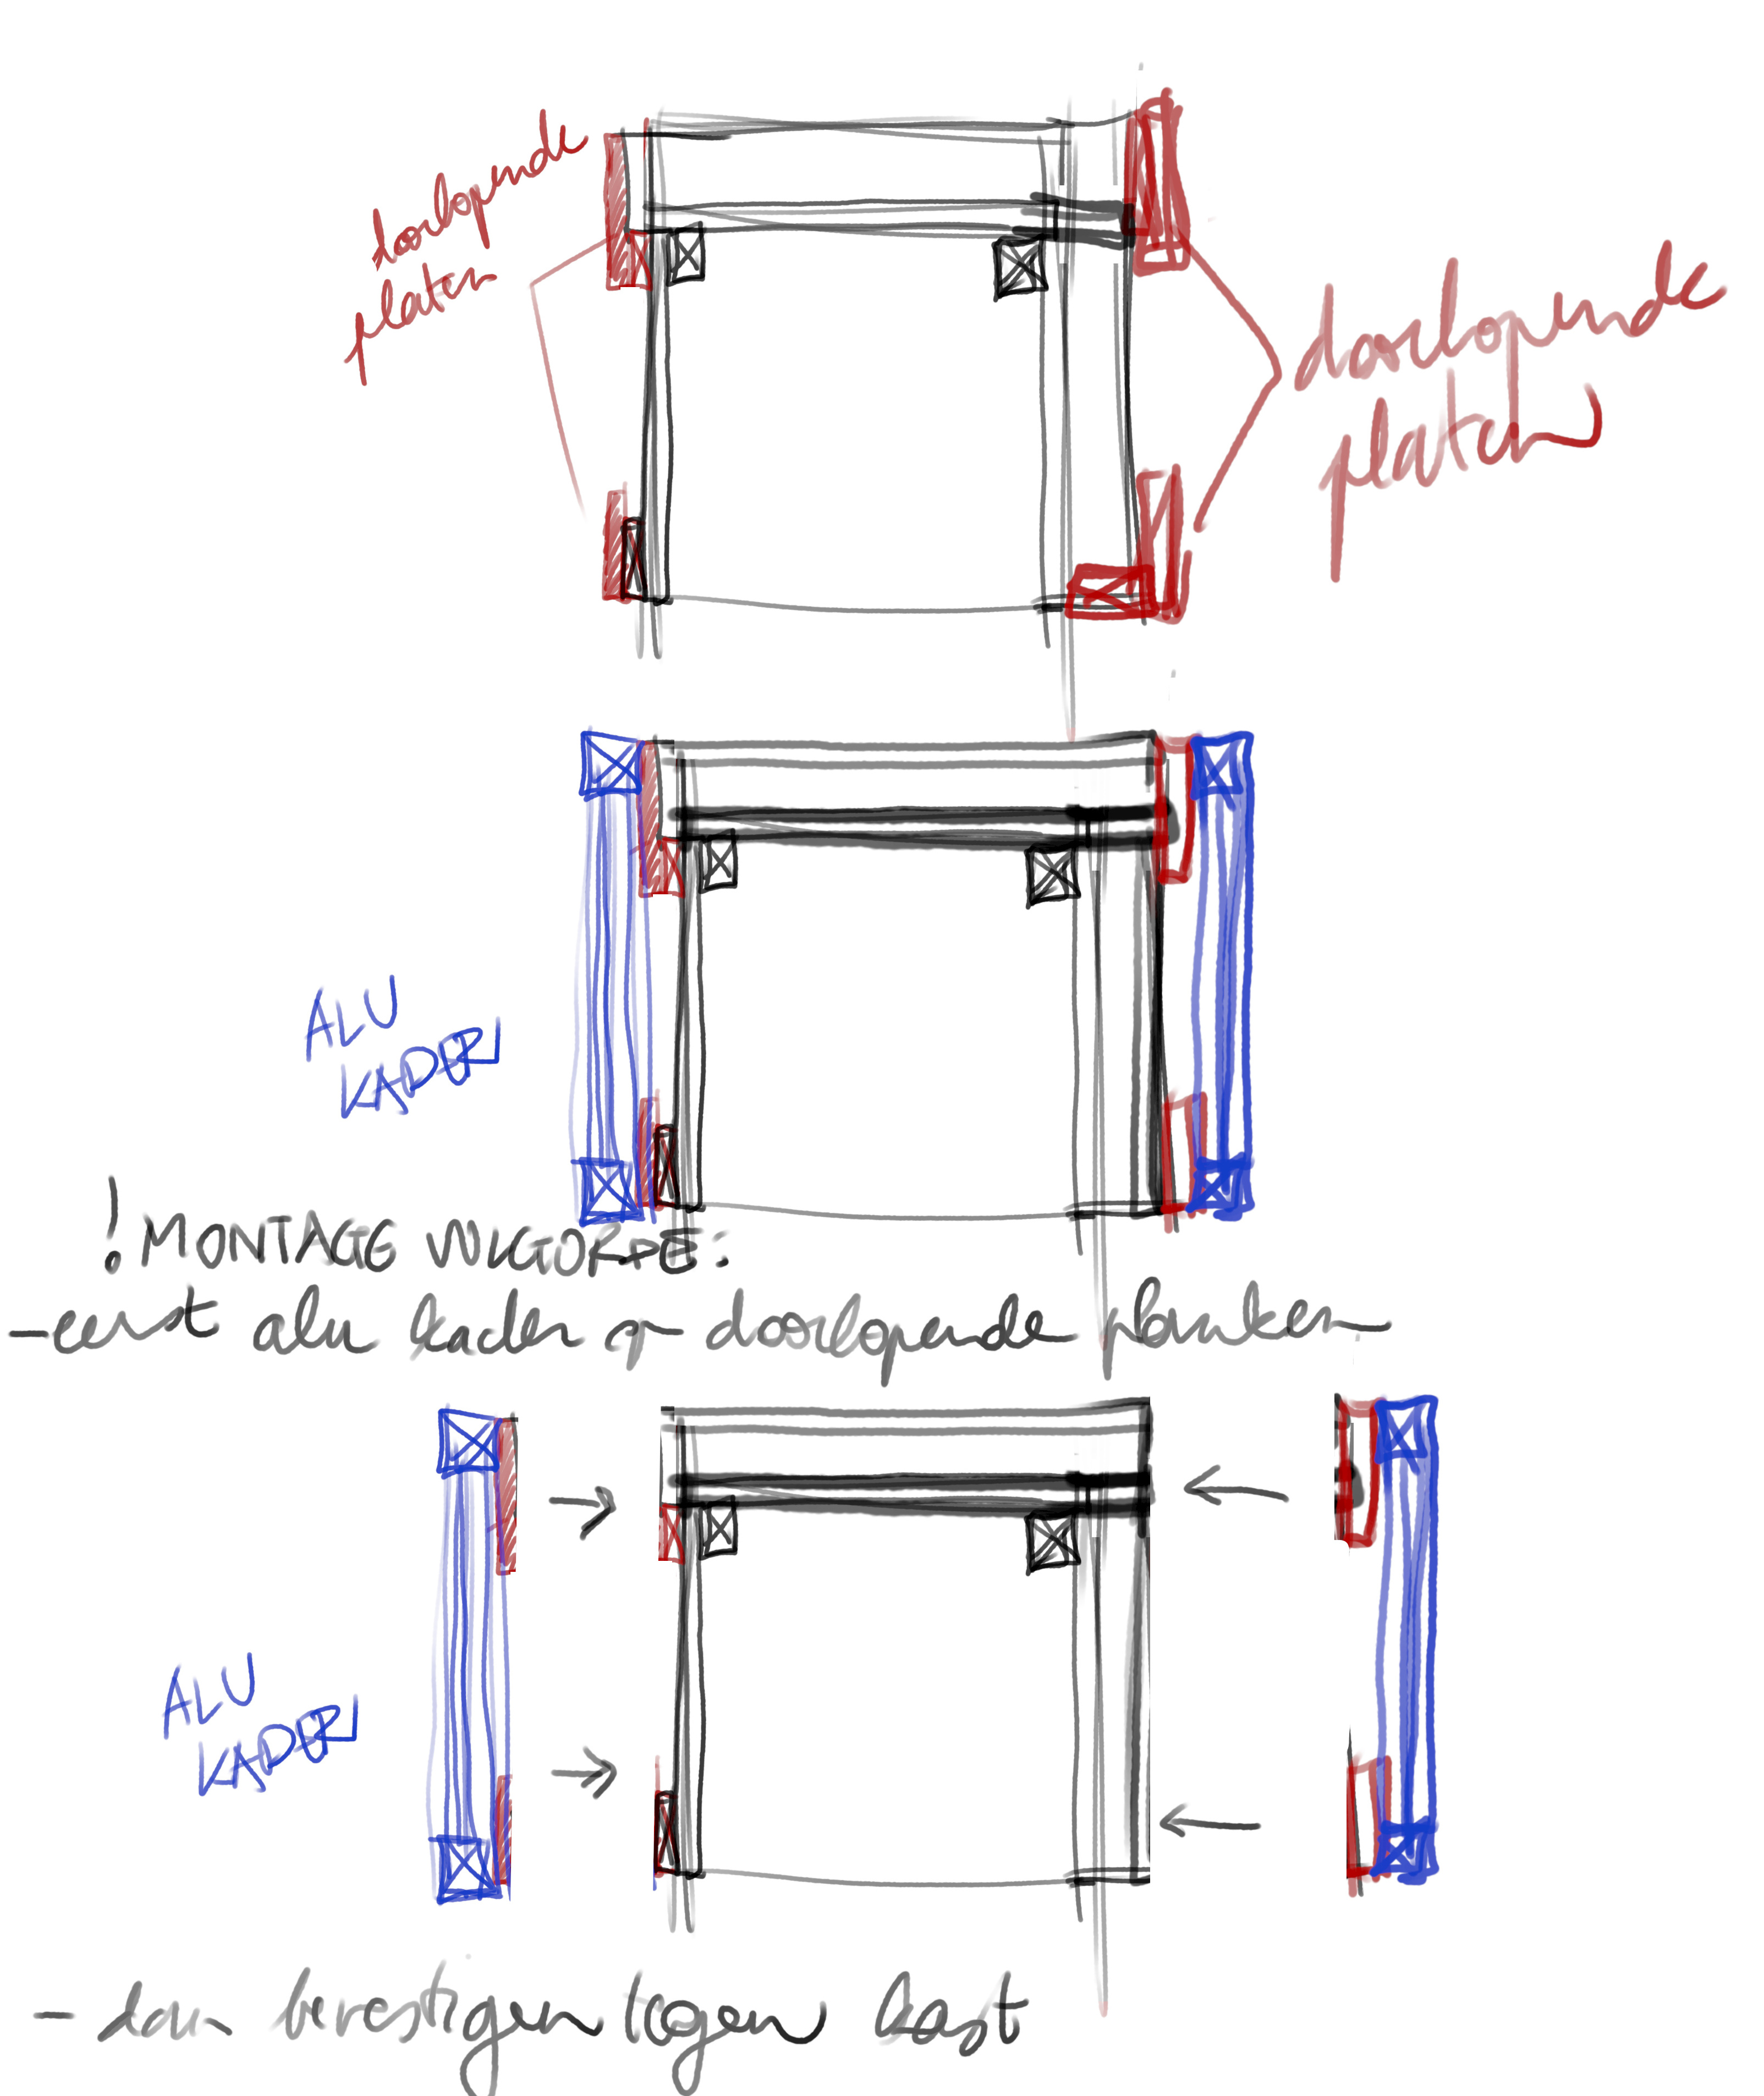 doorlopende
platen
doorlopende
platen
ALU
KADER
! MONTAGE VOLGORDE:
- eerst alu kader op doorlopende planken
ALU
KADER
- dan bevestigen tegen kast